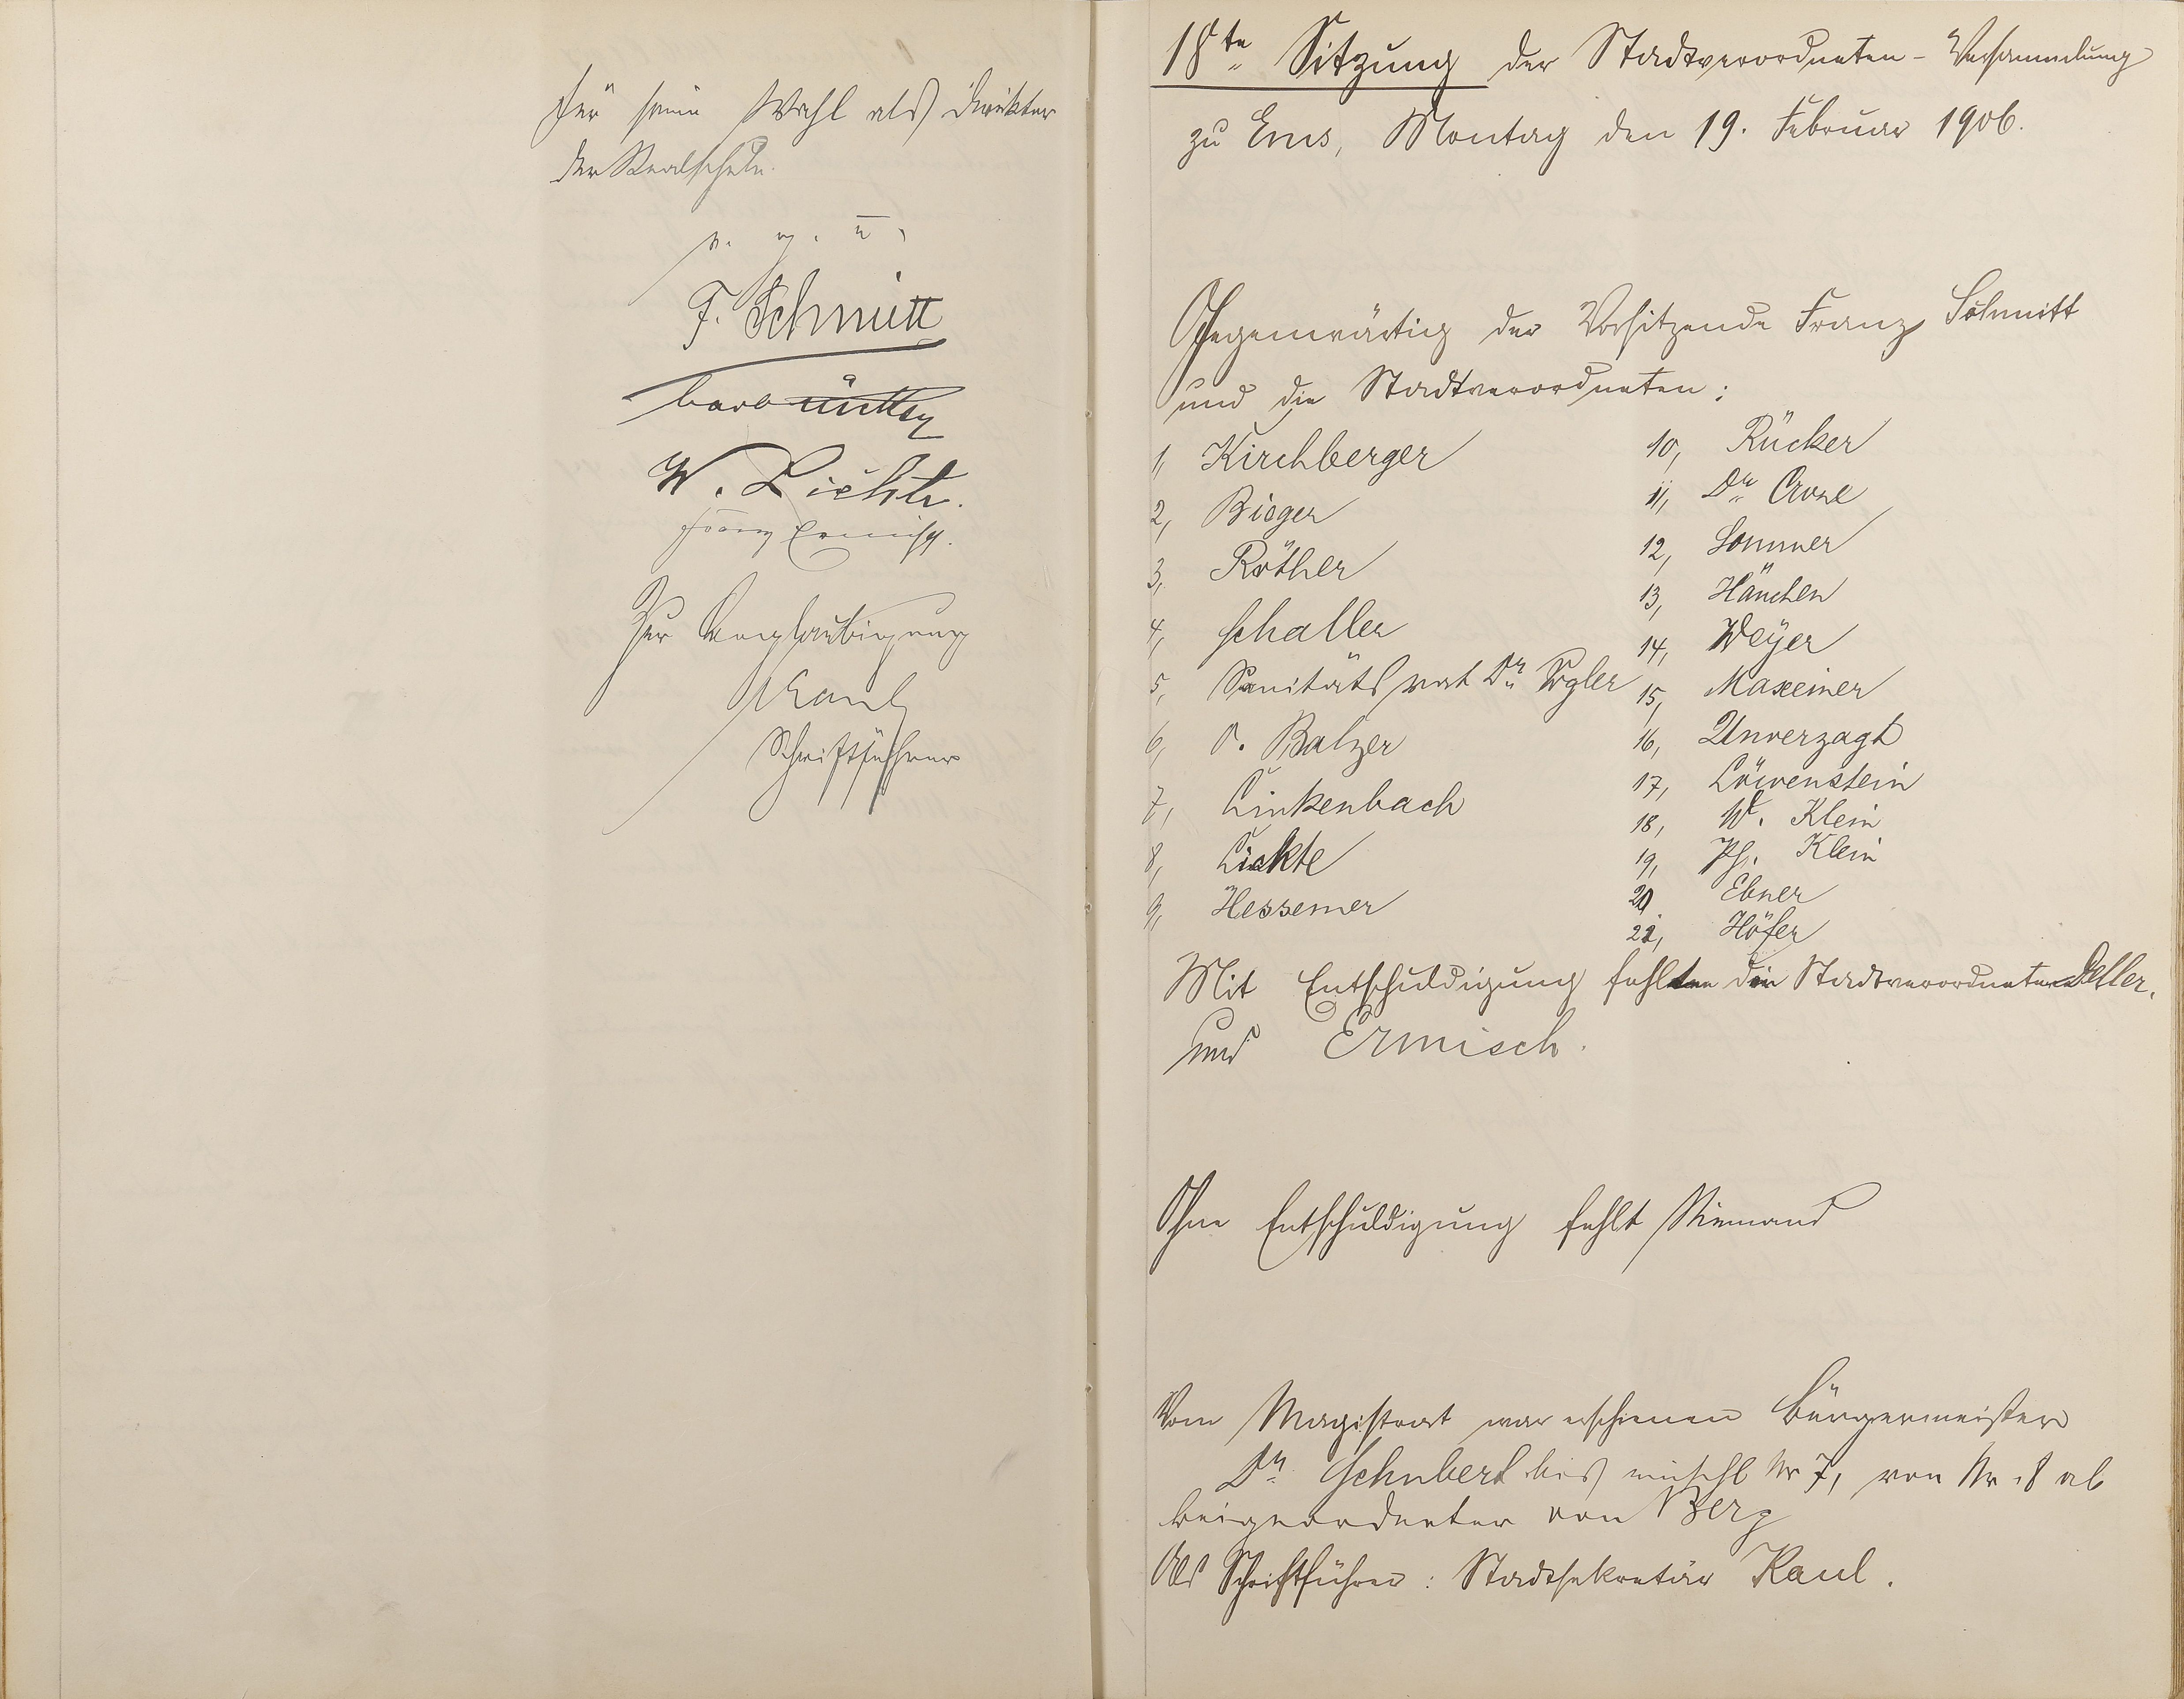 für seine Wahl als Direktor
der Realschule.
v. g. u.
F. Schmitt
W. Lickte.
Franz Ermisch.
Zur Beglaubigung
Kaul
Schriftführer
18te Sitzung der Stadtverordneten-Versammlung
zu Ems, Montag den 19. Februar 1906.
Gegenwärtig der Vorsitzende Franz Schmitt
und die Stadtverordneten:
1, Kirchberger
2, Bieger
3, Röther
4, Schaller
5, Sanitätsrat Dr Vogler
6, O. Balzer
7, Linkenbach
8, Lickte
9, Hessemer
10, Rücker
11, Dr
12, Sommer
13, Hänchen
14, Weyer
15, Maxeiner
16, Unverzagt
17, Löwenstein
18, W. Klein
19, Ph. Klein
20 Ebner
21, Höfer
Mit Entschuldigung fehlten die Stadtverordneten Deller.
und Ermisch.
Ohne Entschuldigung fehlt Niemand
Vom Magistrat war erschienen Bürgermeister
Dr Schubert bis einschl Nr 7, von Nr. 8 ab
Beigeordneter von Berg
Als Schriftführer: Stadtsekretär Kaul.